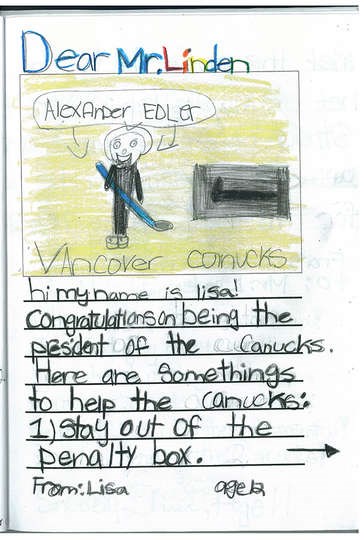 Dear Mr. Linden
AlexAnder EDLer
VAncover canucks
hi my name is lisa!
Congratulations on being the
pesident of the Canucks.
Here are Somethings
to help the canucks:
1) Stay out of the
penalty box.
From: Lisa age